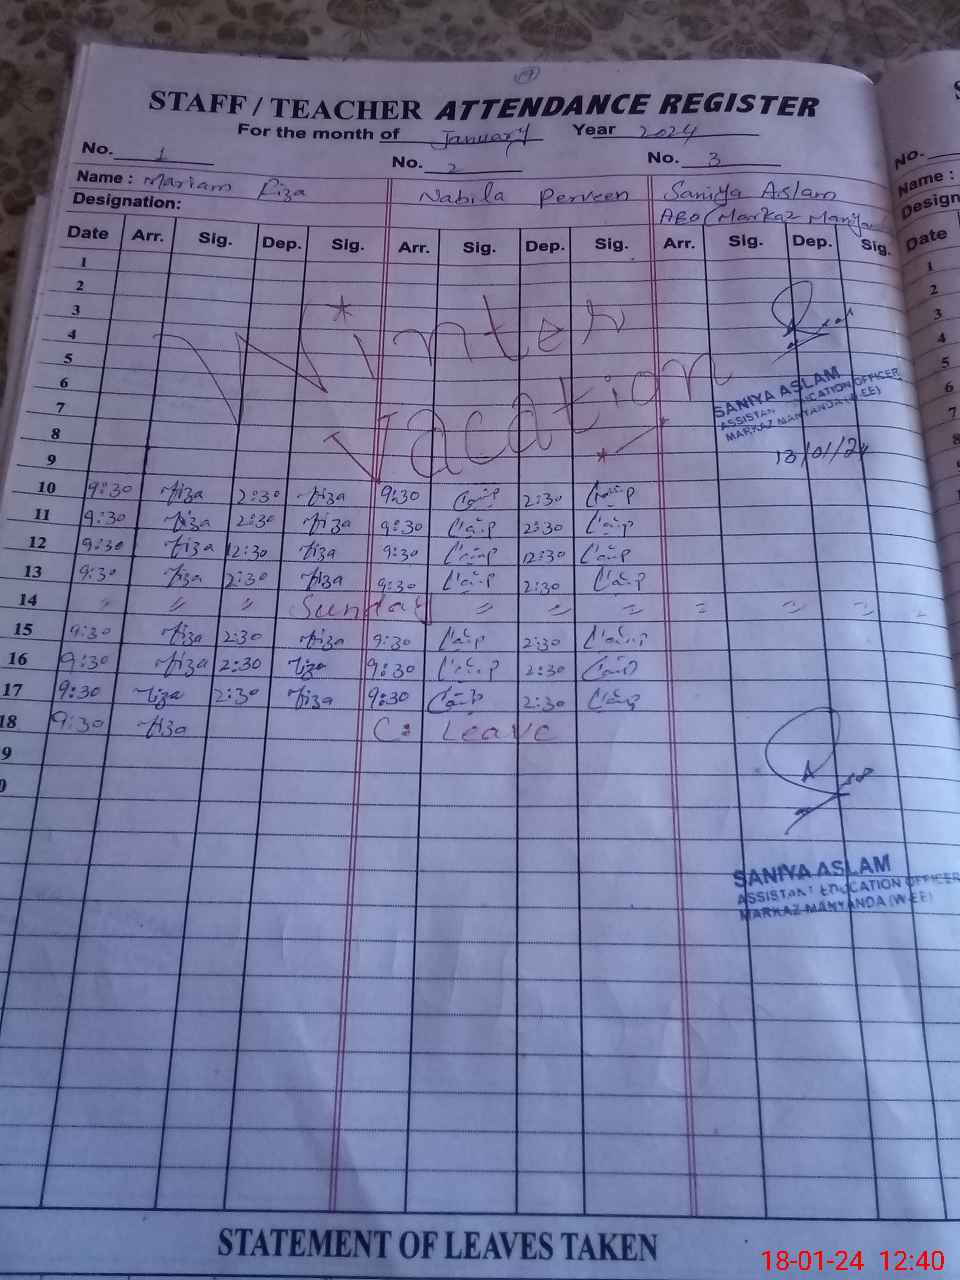 STAFF / TEACHER ATTENDANCE REGISTER
For the month of January Year 2024
No. 1 No. 2 No. 3
Name : Mariam Riza Nabila Perveen Saniya Aslam
Designation: AEO (Markaz Manyanda
Date Arr. Sig. Dep. Sig. Arr. Sig. Dep. Sig. Arr. Sig. Dep. Sig.
1
2
3
4
5
6
7
8
9
* Winter
Vacation *
SANIYA ASLAM
ASSISTANT EDUCATION OFFICER
MARKAZ MANYANDA (W-EE)
13/01/24
10 9:30 Riza 2:30 Riza 9:30 2:30
11 9:30 Riza 2:30 Riza 9:30 2:30
12 9:30 Riza 12:30 Riza 9:30 12:30
13 9:30 Riza 2:30 Riza 9:30 2:30
14 〃 〃 〃 Sunday 〃 〃 〃 〃 〃 〃
15 9:30 Riza 2:30 Riza 9:30 2:30
16 9:30 Riza 2:30 Riza 9:30 2:30
17 9:30 Riza 2:30 Riza 9:30 2:30
18 9:30 Riza C: Leave
9
0
SANIYA ASLAM
ASSISTANT EDUCATION OFFICER
MARKAZ MANYANDA (W-EE)
STATEMENT OF LEAVES TAKEN
18-01-24 12:40
No.
Name :
Design
Date
1
2
3
4
5
6
7
8
9